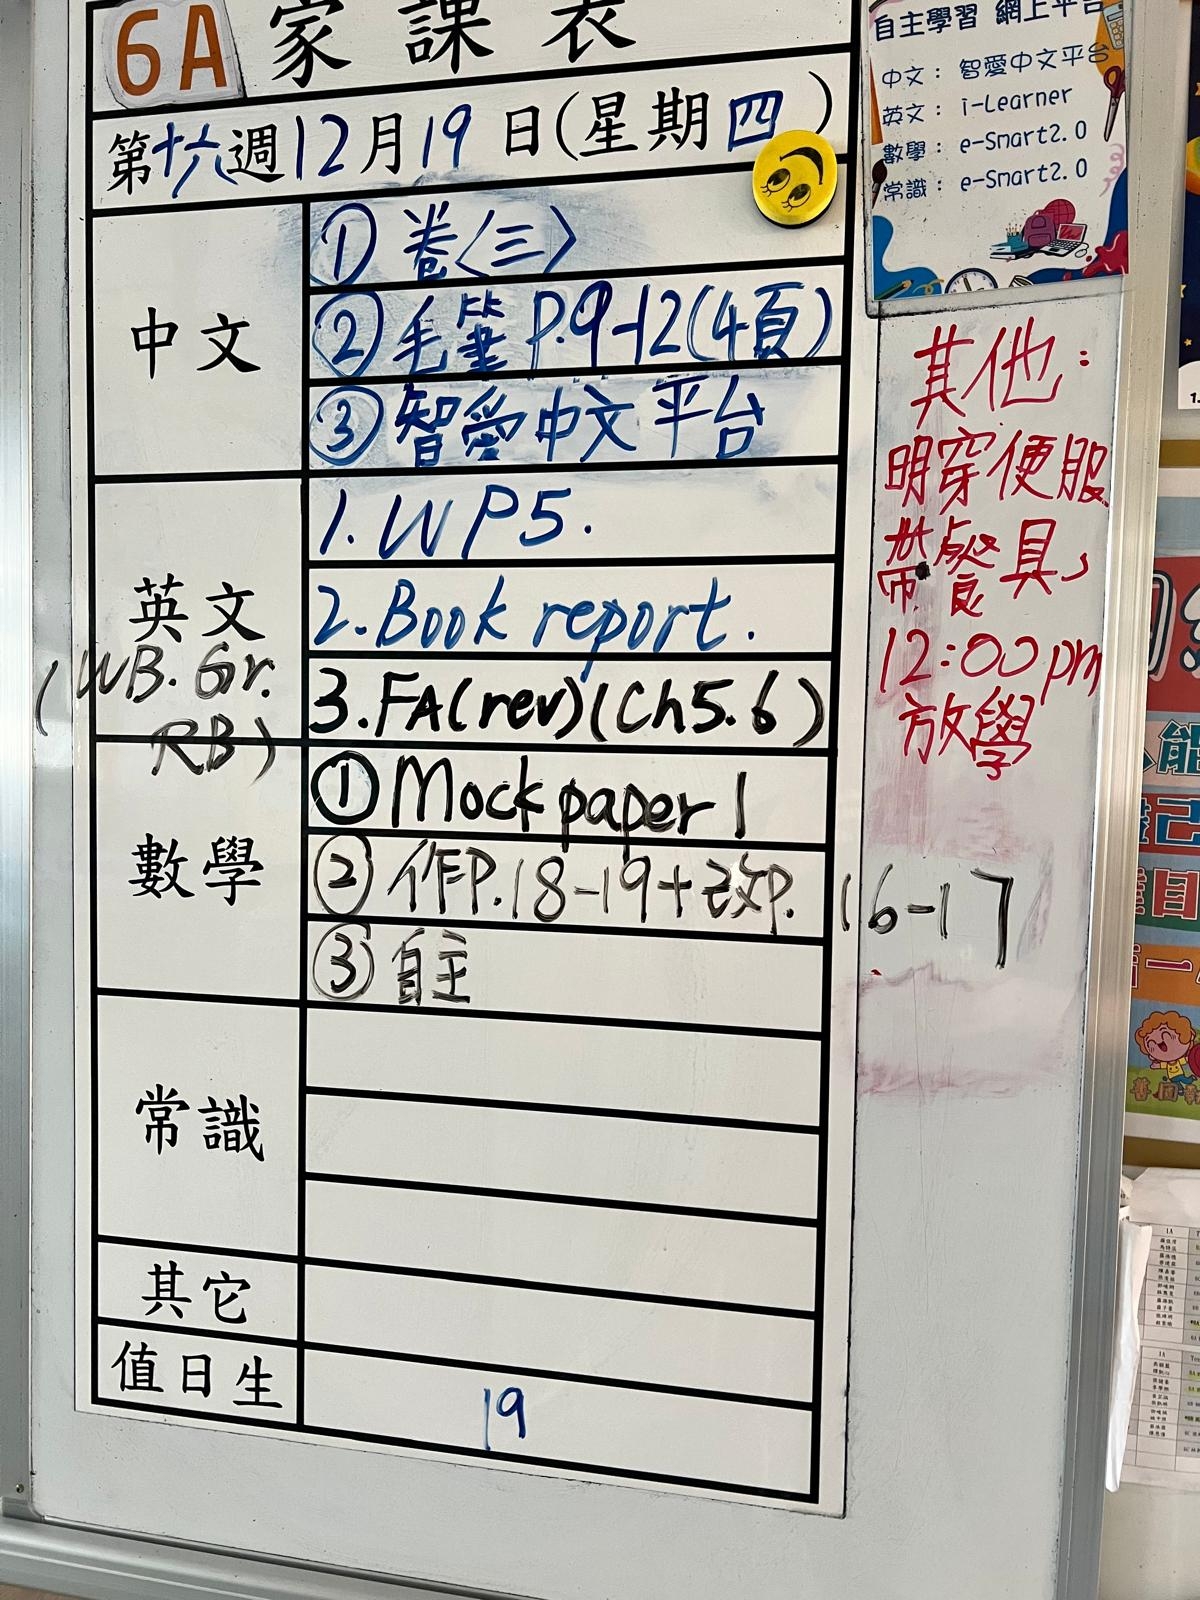 6A 家課表
第十六週12月19日(星期四)
中文
① 卷〈三〉
② 毛筆 P.9-12(4頁)
③ 智愛中文平台
英文
(WB. Gr.
RB)
1. WP5.
2. Book report.
3. FA(rev)(Ch5.6)
數學
① Mock paper 1
② 作P.18-19+改P. 16-17
③ 自主
常識
其它
值日生
19
自主學習 網上平台
中文： 智愛中文平台
英文： i-Learner
數學： e-Smart2.0
常識： e-Smart2.0
其他：
明穿便服
帶餐具,
12:00pm
放學